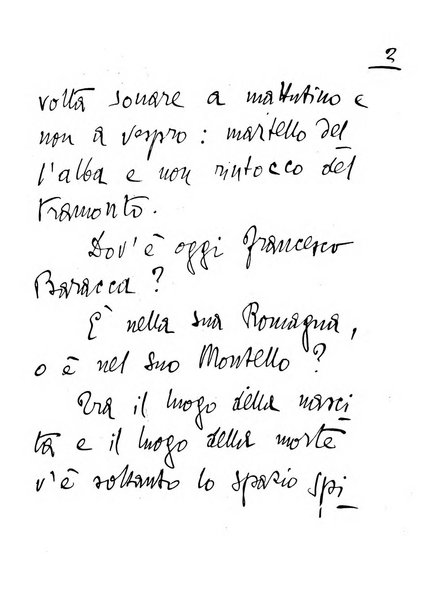 2
volta sonare a mattutino e
non a vespro: martello del
l'alba e non rintocco del
tramonto.
Dov'è oggi Francesco
Baracca?
È nella sua Romagna,
o è nel suo Montello?
Tra il luogo della nasci
ta e il luogo della morte
v'è soltanto lo spazio spi